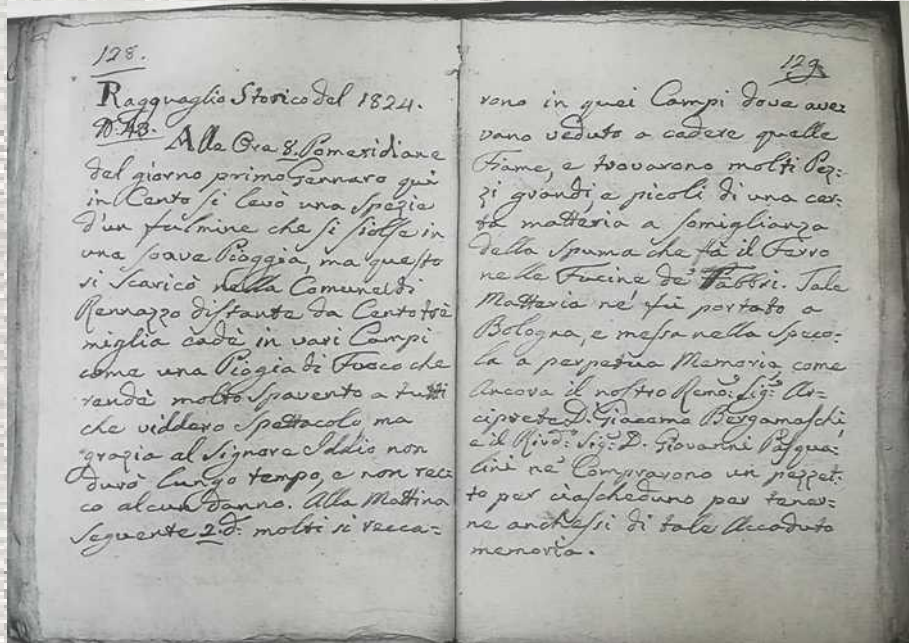 128.
Ragguaglio Storico del 1824.
N. 43.
Alla Ora 8. Pomeridiane
del giorno primo Gennaro qui
in Cento si levò una spezie
d'un fulmine che si siolse in
una soave Pioggia, ma questo
si scaricò nella Comune di
Rennazzo distante da Cento trè
miglia cadè in vari Campi
come una Piogia di Fuoco che
rendè molto Spavento a tutti
che viddero Spettacolo, ma
grazia al Signore Iddio, non
durò lungo tempo, e non rec:
co alcun danno. Alla Mattina
Seguente 2. d: molti si recca=
129
rono in quei Campi dove ave:
vano veduto a cadere quelle
Fiame, e trovarono molti Pez:
zi grandi, e picoli di una cer:
ta matteria a somiglianza
della Spuma che fà il Ferro
nelle Fucine de' Fabbri. Tale
Matteria ne' fù portato a
Bologna, e messa nella Speco:
la a perpetua Memoria, come
Ancora il nostro Remo: Sig: Ar:
ciprete D. Giacomo Bergamaschi
e il Rivd: Sig: D. Giovanni Pasqua:
lini ne' Comprarono un pezzet:
to per ciascheduno per tener:
ne anch'essi di tale Accaduto
memoria.